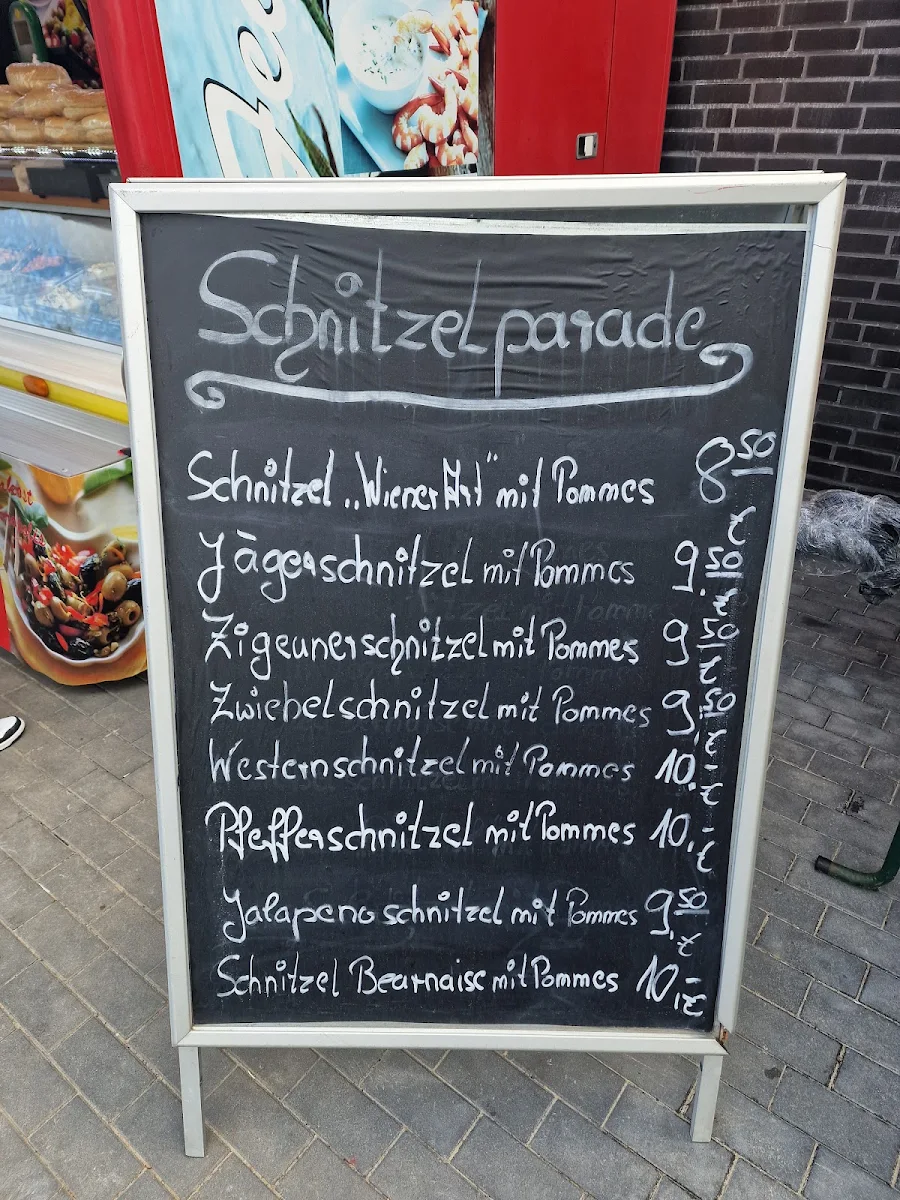 Schnitzelparade
Schnitzel „Wiener Art" mit Pommes 8,50
Jägerschnitzel mit Pommes 9,50
Zigeunerschnitzel mit Pommes 9,50
Zwiebelschnitzel mit Pommes 9,50
Westernschnitzel mit Pommes 10,-
Pfefferschnitzel mit Pommes 10,-
Jalapeno schnitzel mit Pommes 9,50
Schnitzel Bearnaise mit Pommes 10,-